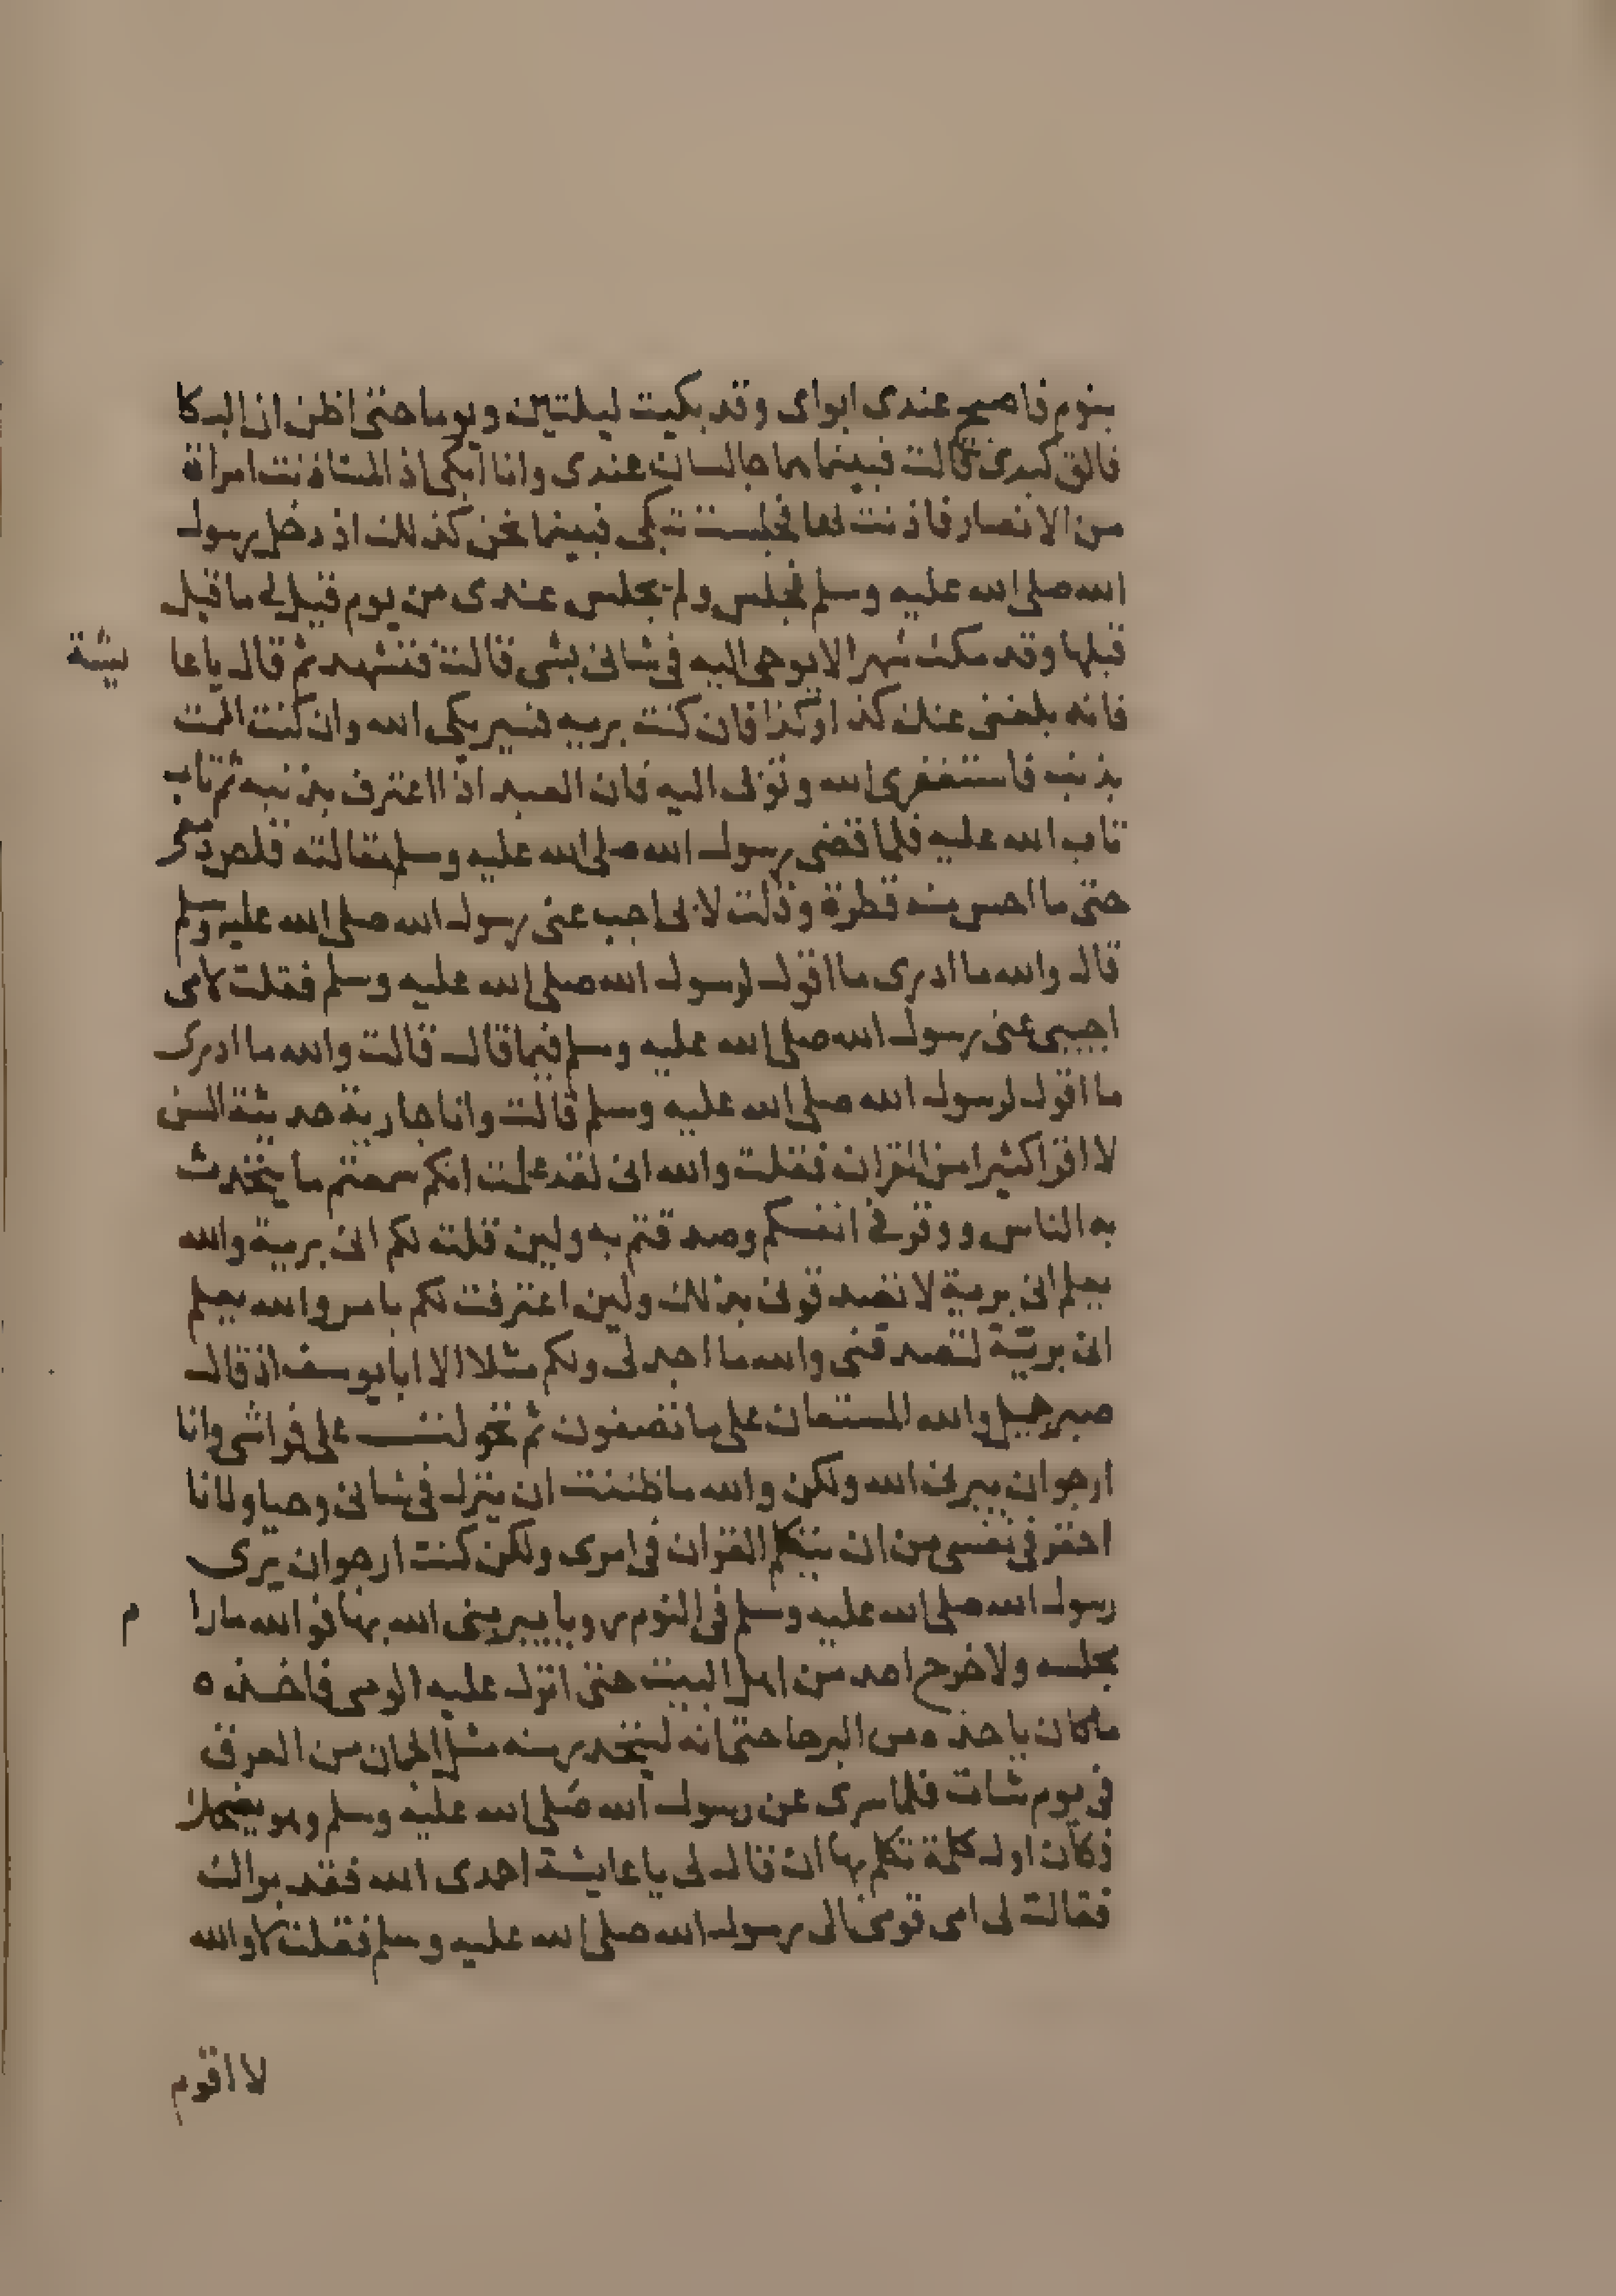 بنوم فاصبح عندى ابواى وقد بكيت ليلتين ويوما حتى اظن ان البكا
فالق كبدى قالت فبينما هما جالسان عندى وانا ابكى اذ استاذنت امراة
من الانصار فاذنت لها فجلست تبكى فبينما نحن كذلك اذ دخل رسول
الله صلى الله عليه وسلم فجلس ولم يجلس عندى من يوم قيل لى ما قيل
قبلها وقد مكث شهرا لا يوحى اليه فى شانى بشى قالت فتشهد ثم قال يا عا يشة
فانه بلغنى عنك كذا وكذا فان كنت بريه فسيريكى الله وان كنت المت
بذنب فاستغفرى الله وتوبى اليه فان العبد اذا اعترف بذنبه ثم تاب
تاب الله عليه فلما قضى رسول الله صلى الله عليه وسلم مقالته قلص دمعى
حتى ما احس منه قطرة وقلت لابى اجب عنى رسول الله صلى الله عليه وسلم
قال والله ما ادرى ما اقول لرسول الله صلى الله عليه وسلم فقلت لامى
اجيبى عنى رسول الله صلى الله عليه وسلم فيما قال قالت والله ما ادرى
ما اقول لرسول الله صلى الله عليه وسلم قالت وانا جارية حديثة السن
لا اقرا كثيرا من القران فقلت والله انى لقد علمت انكم سمعتم ما يتحدث
به الناس ووقر فى انفسكم وصدقتم به ولين قلت لكم انى برية والله
يعلم انى برية لا تصدقونى بذلك ولين اعترفت لكم بامر والله يعلم
انى بريّة لتصدقنى والله ما اجد لى ولكم مثلا الا ابا يوسف اذ قال
صبر جميل والله المستعان على ما تصفون ثم تحولت على فراشى وانا
ارجوا ن يبرنى الله ولكن والله ما ظننت ان ينزل فى شانى وحيا ولانا
احقر فى نفسى من ان يتكلم القران فى امرى ولكن كنت ارجوا ن يرى
رسول الله صلى الله عليه وسلم فى النوم رويا يبرينى الله بها فوالله ما را م
مجلسه ولا خرج احد من اهل البيت حتى انزل عليه الوحى فاخذه
ما كان ياخذه من البرحا حتى انه ليتحدر منه مثل الجمان من العرق
فى يوم شات فلما سرى عن رسول الله صلى الله عليه وسلم وهو يضحك
فكان اول كلمة تكلم بها ان قال لى يا عايشة احمدى الله فقد براك
فقالت لى امى قومى الى رسول الله صلى الله عليه وسلم فقلت لا والله
لا اقوم